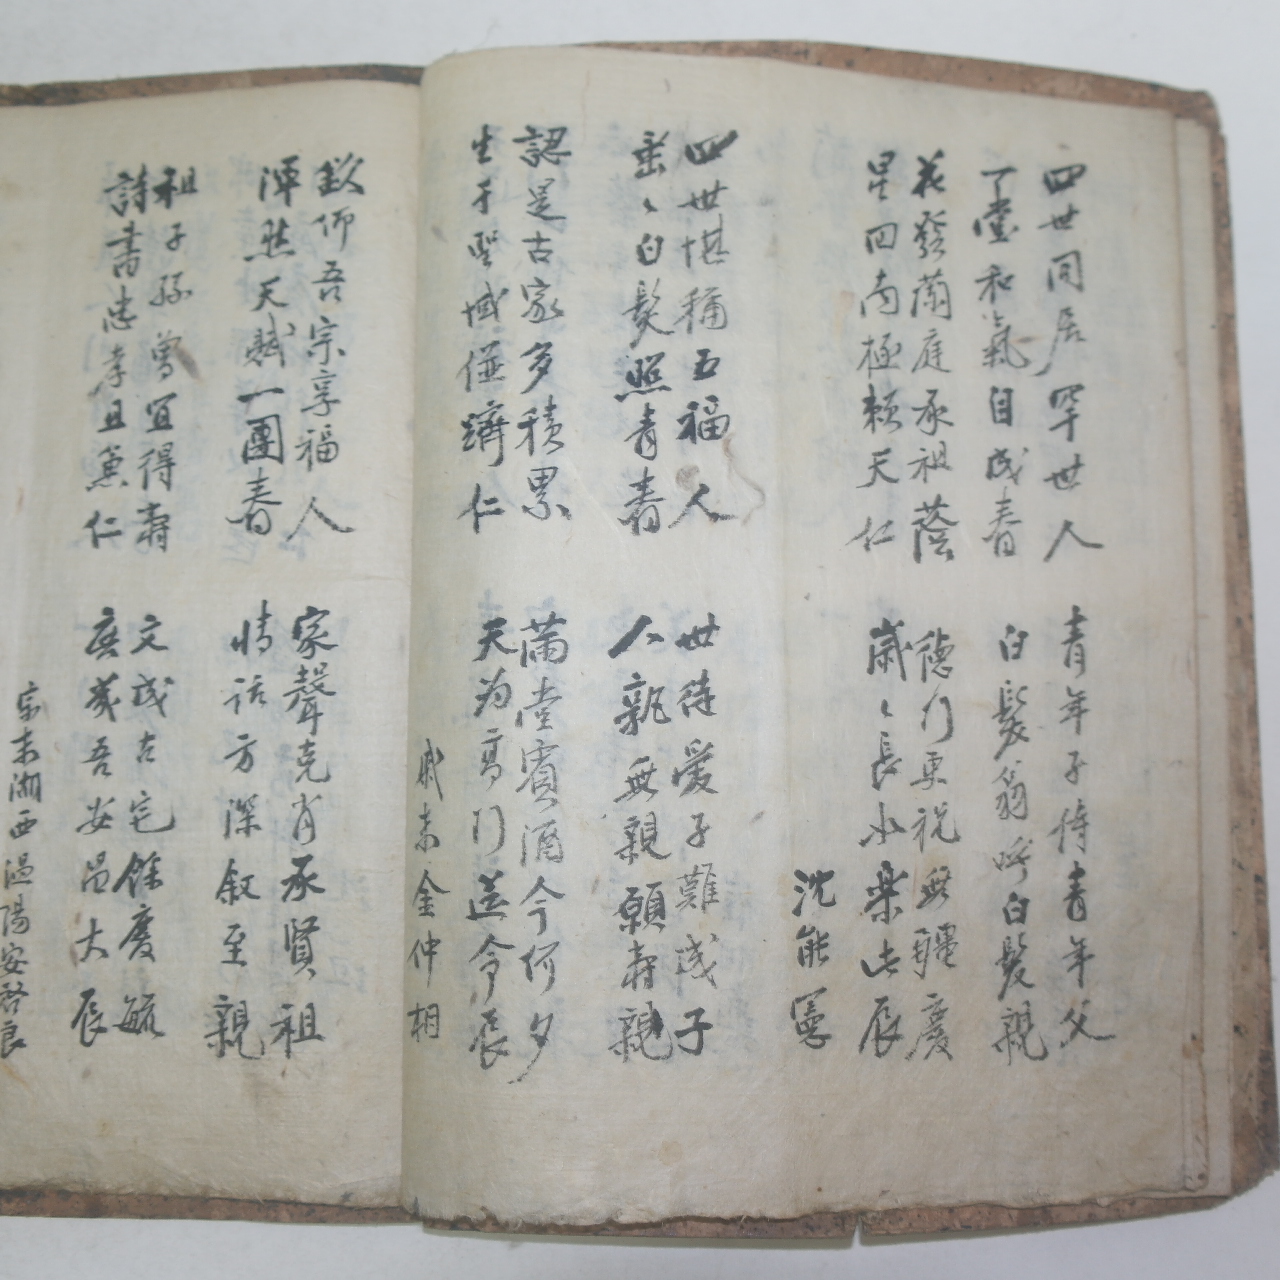 四世同居罕世人
一堂和氣自成春
青年子侍青年父
白髮翁呼白髮親
花發蘭庭承祖蔭
星回南極賴天仁
德門更祝無疆慶
歲〻長永樂此辰
沈能
四世堪稱五福人
垂〻白髮照青春
世待愛子難成子
人孰無親願壽親
認是古家多積累
生于聖域僅躋仁
滿堂賓酒今何夕
天为高門送令辰
戚末金仲相
欽仰吾宗享福人
渾然天賦一團春
家聲克肖承賢祖
情話方深叙至親
祖子孫曾宜得壽
詩書忠孝且兼仁
文成古宅餘慶毓
吾安邑大辰
宗末湘西溫陽安啓良